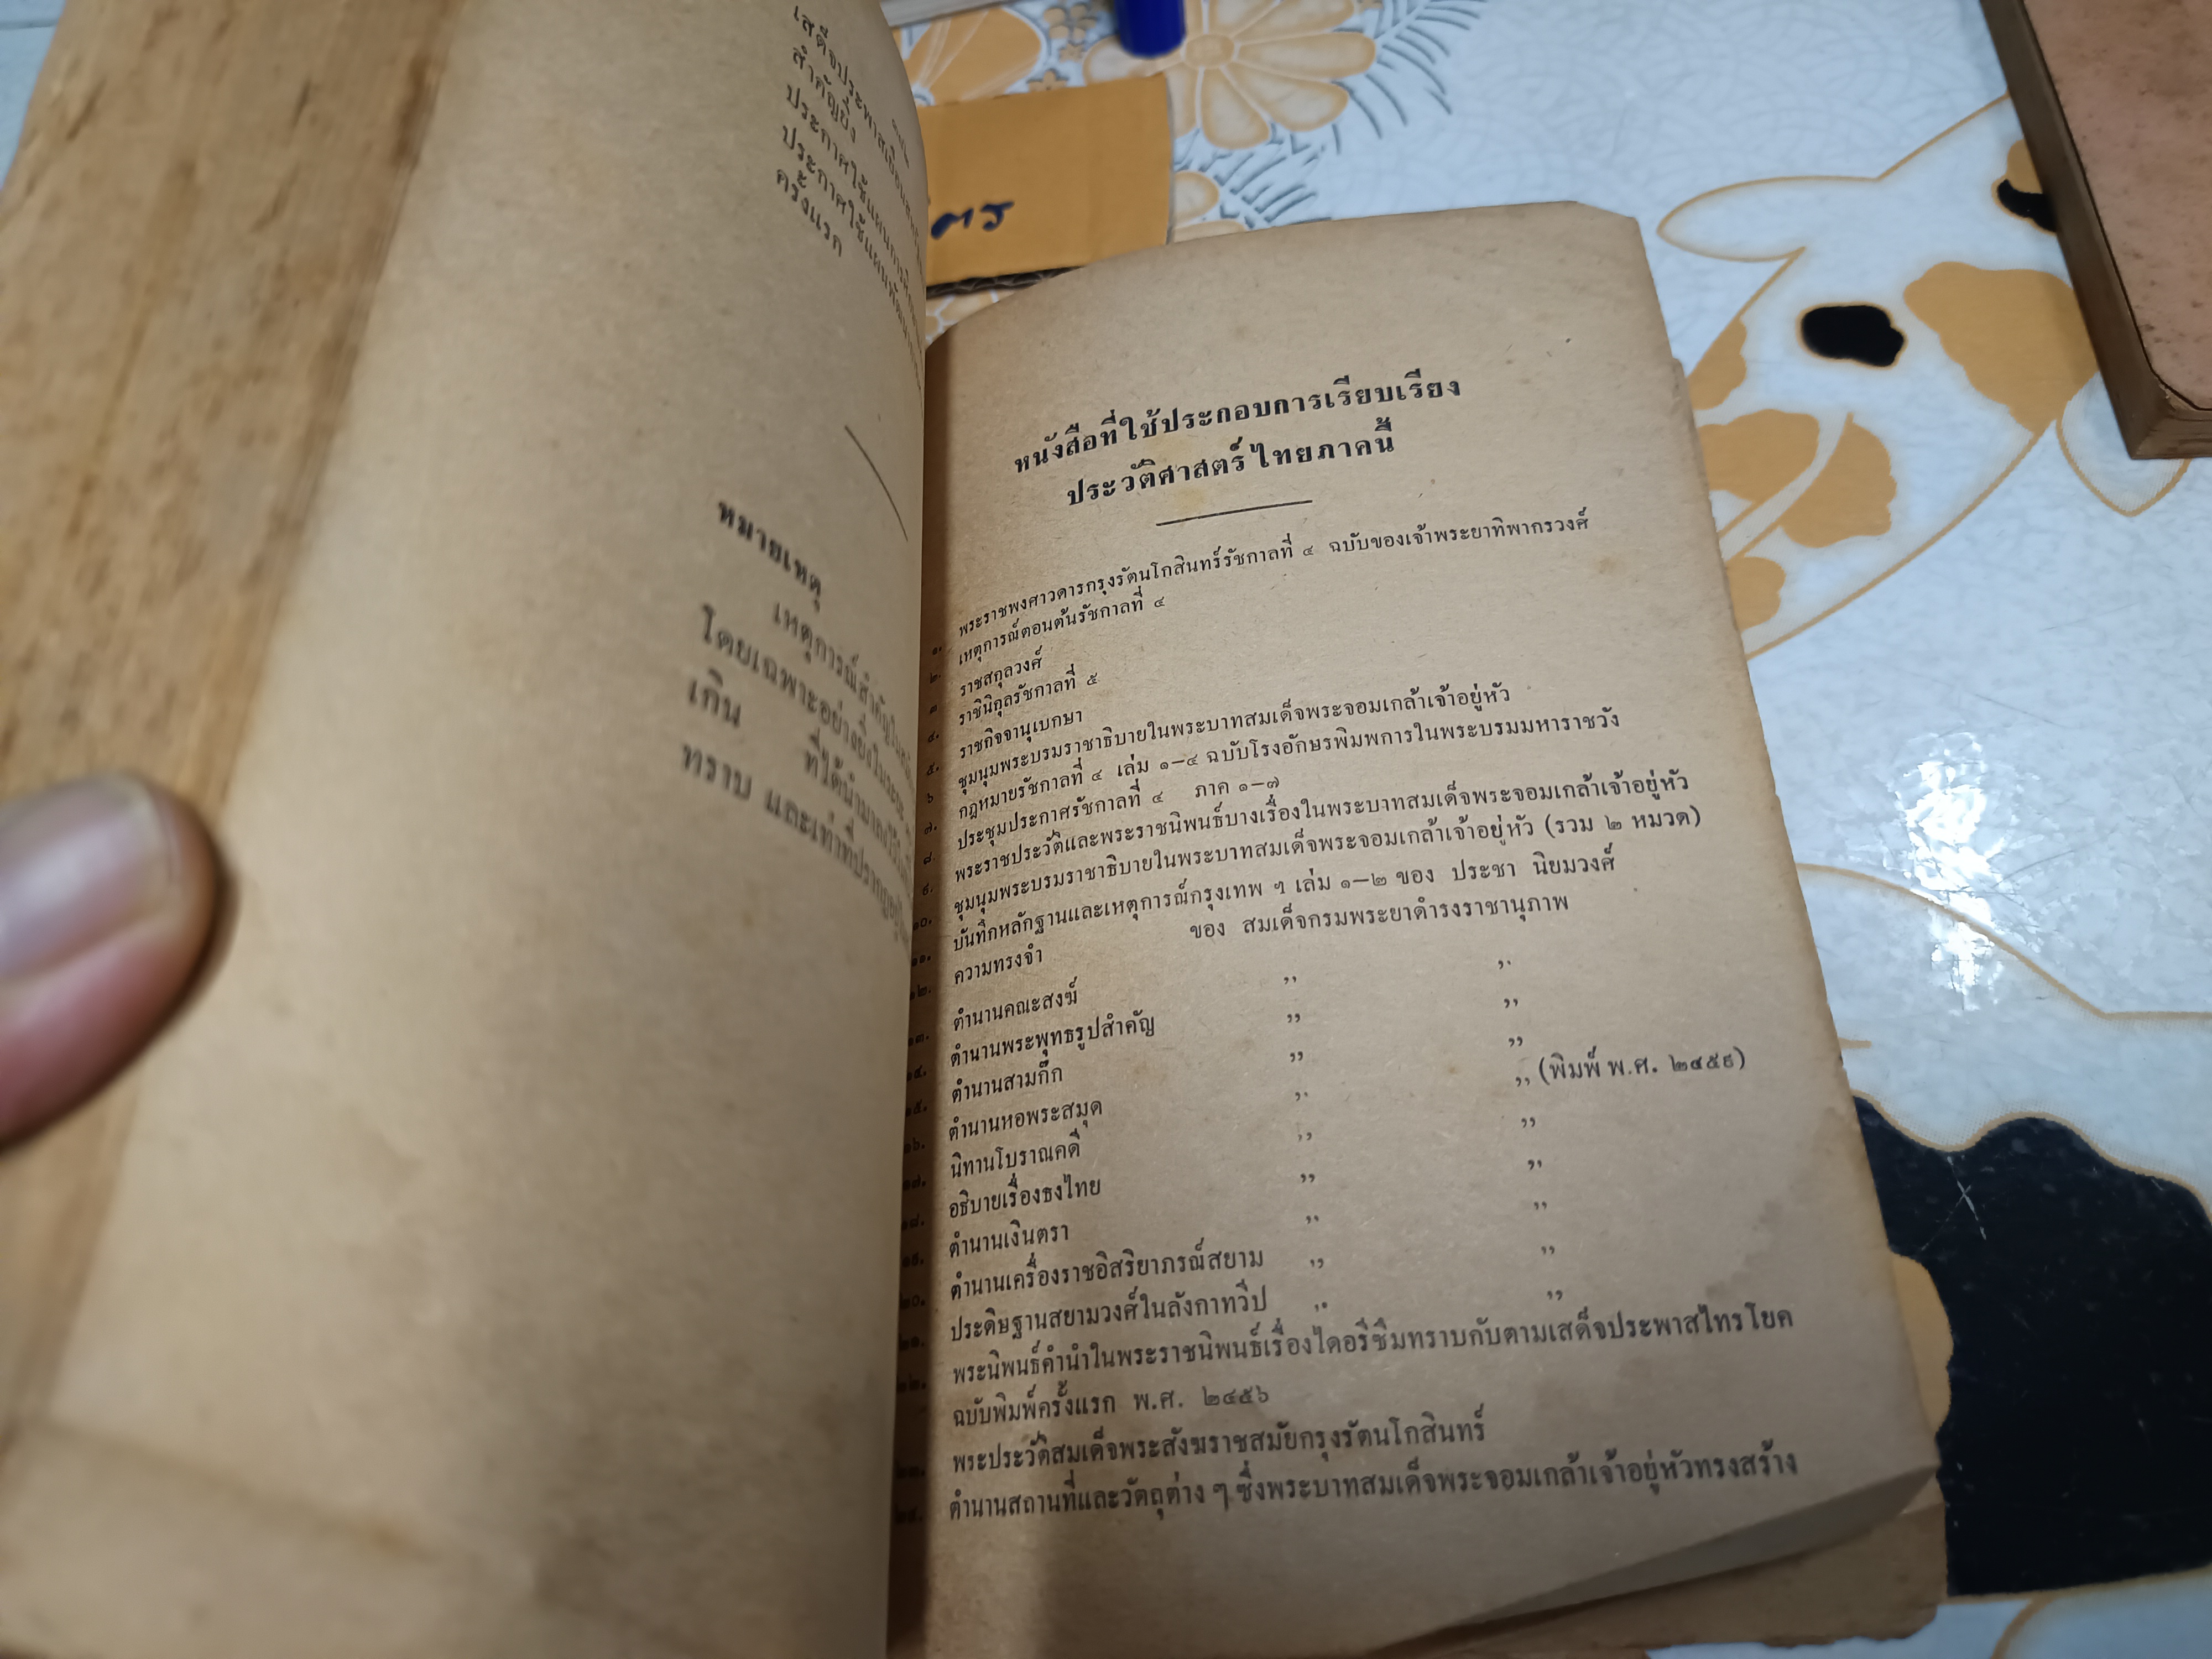 เสด็จประพาส
สำคัญยิ่ง
ประกาศใช้แผนการศึกษา
ประกาศใช้แผนพัฒนา
ครั้งแรก
หมายเหตุ
เหตุการณ์สำคัญใน
โดยเฉพาะอย่างยิ่งใน
เกิน ที่ได้นำมาลงไว้
ทราบ และเท่าที่ปรากฏอยู่
ตร
หนังสือที่ใช้ประกอบการเรียบเรียง
ประวัติศาสตร์ไทยภาคนี้
๑. พระราชพงศาวดารกรุงรัตนโกสินทร์รัชกาลที่ ๔ ฉบับของเจ้าพระยาทิพากรวงศ์
๒. เหตุการณ์ตอนต้นรัชกาลที่ ๔
๓ ราชสกุลวงศ์
๔. ราชินิกุลรัชกาลที่ ๕
๕. ราชกิจจานุเบกษา
๖ ชุมนุมพระบรมราชาธิบายในพระบาทสมเด็จพระจอมเกล้าเจ้าอยู่หัว
๗. กฎหมายรัชกาลที่ ๔ เล่ม ๑–๔ ฉบับโรงอักษรพิมพการในพระบรมมหาราชวัง
๘. ประชุมประกาศรัชกาลที่ ๔ ภาค ๑–๗
๙. พระราชประวัติและพระราชนิพนธ์บางเรื่องในพระบาทสมเด็จพระจอมเกล้าเจ้าอยู่หัว
๑๐. ชุมนุมพระบรมราชาธิบายในพระบาทสมเด็จพระจอมเกล้าเจ้าอยู่หัว (รวม ๒ หมวด)
๑๑. บันทึกหลักฐานและเหตุการณ์กรุงเทพ ฯ เล่ม ๑–๒ ของ ประชา นิยมวงศ์
๑๒. ความทรงจำ ของ สมเด็จกรมพระยาดำรงราชานุภาพ
๑๓. ตำนานคณะสงฆ์ ,, ,,
๑๔. ตำนานพระพุทธรูปสำคัญ ,, ,,
๑๕. ตำนานสามก๊ก ,, ,,
๑๖. ตำนานหอพระสมุด ,, ,, (พิมพ์ พ.ศ. ๒๔๕๙)
๑๗. นิทานโบราณคดี ,, ,,
๑๘. อธิบายเรื่องธงไทย ,, ,,
๑๙. ตำนานเงินตรา ,, ,,
๒๐. ตำนานเครื่องราชอิสริยาภรณ์สยาม ,, ,,
๒๑. ประดิษฐานสยามวงศ์ในลังกาทวีป ,, ,,
๒๒. พระนิพนธ์คำนำในพระราชนิพนธ์เรื่องไดอรีซึมทราบกับตามเสด็จประพาสไทรโยค
ฉบับพิมพ์ครั้งแรก พ.ศ. ๒๔๕๖
๒๓. พระประวัติสมเด็จพระสังฆราชสมัยกรุงรัตนโกสินทร์
๒๔. ตำนานสถานที่และวัตถุต่าง ๆ ซึ่งพระบาทสมเด็จพระจอมเกล้าเจ้าอยู่หัวทรงสร้าง